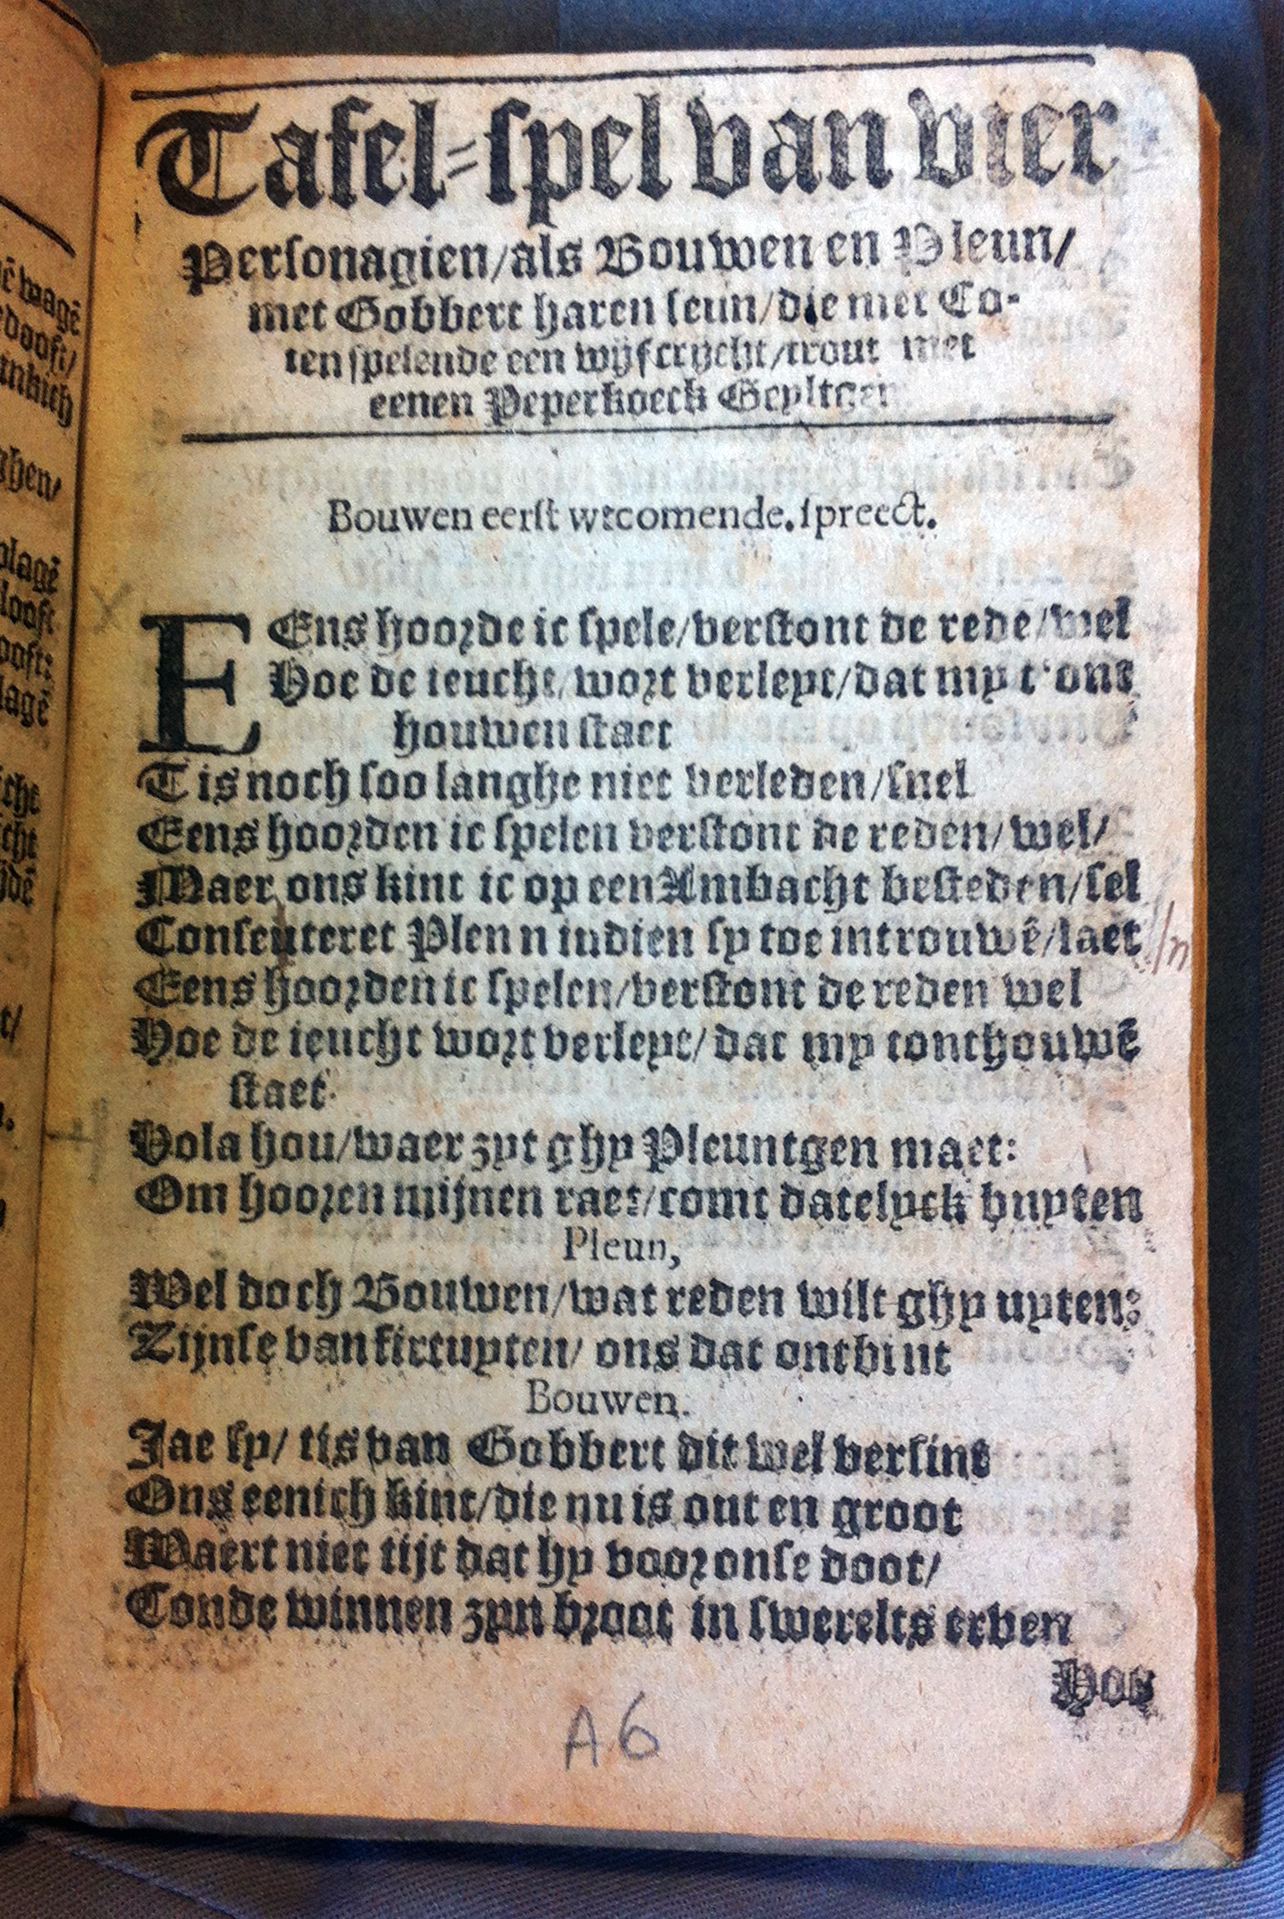 Tafel-spel van vier
Personagien/als Bouwen en Pleun/
met Gobbert haren seun/die met Co-
ten spelende een wijf crycht/trout met
eenen Peperkoeck Geyltgen
Bouwen eerst wtcomende. spreect.
EEns hoorde ic spele/verstont de rede/wel
Hoe de ieucht/wort verleyt/dat my t'ont
houwen staet
Tis noch soo langhe niet verleden/snel
Eens hoorden ic spelen verstont de reden/wel/
Maer ons kint ic op een Ambacht besteden/sel
Consenteret Pleun indien sy toe introuwē/laet
Eens hoorden ic spelen/verstont de reden wel
Hoe de ieucht wort verleyt/dat my tonthouwē
staet
Hola hou/waer zyt ghy Pleuntgen maet:
Om hooren mijnen raet/comt datelyck buyten
Pleun,
Wel doch Bouwen/wat reden wilt ghy uyten:
Zijnse van firtuyten/ ons dat ontbint
Bouwen.
Jae sy/ tis van Gobbert dit wel versint
Ons eenich kint/die nu is out en groot
Waert niet tijt dat hy voor onse doot/
Conde winnen zyn broot in swerelts erven
Hoe
A6
wagē
edooft/
ghen/
plagē
looft
ooft:
lagē
n